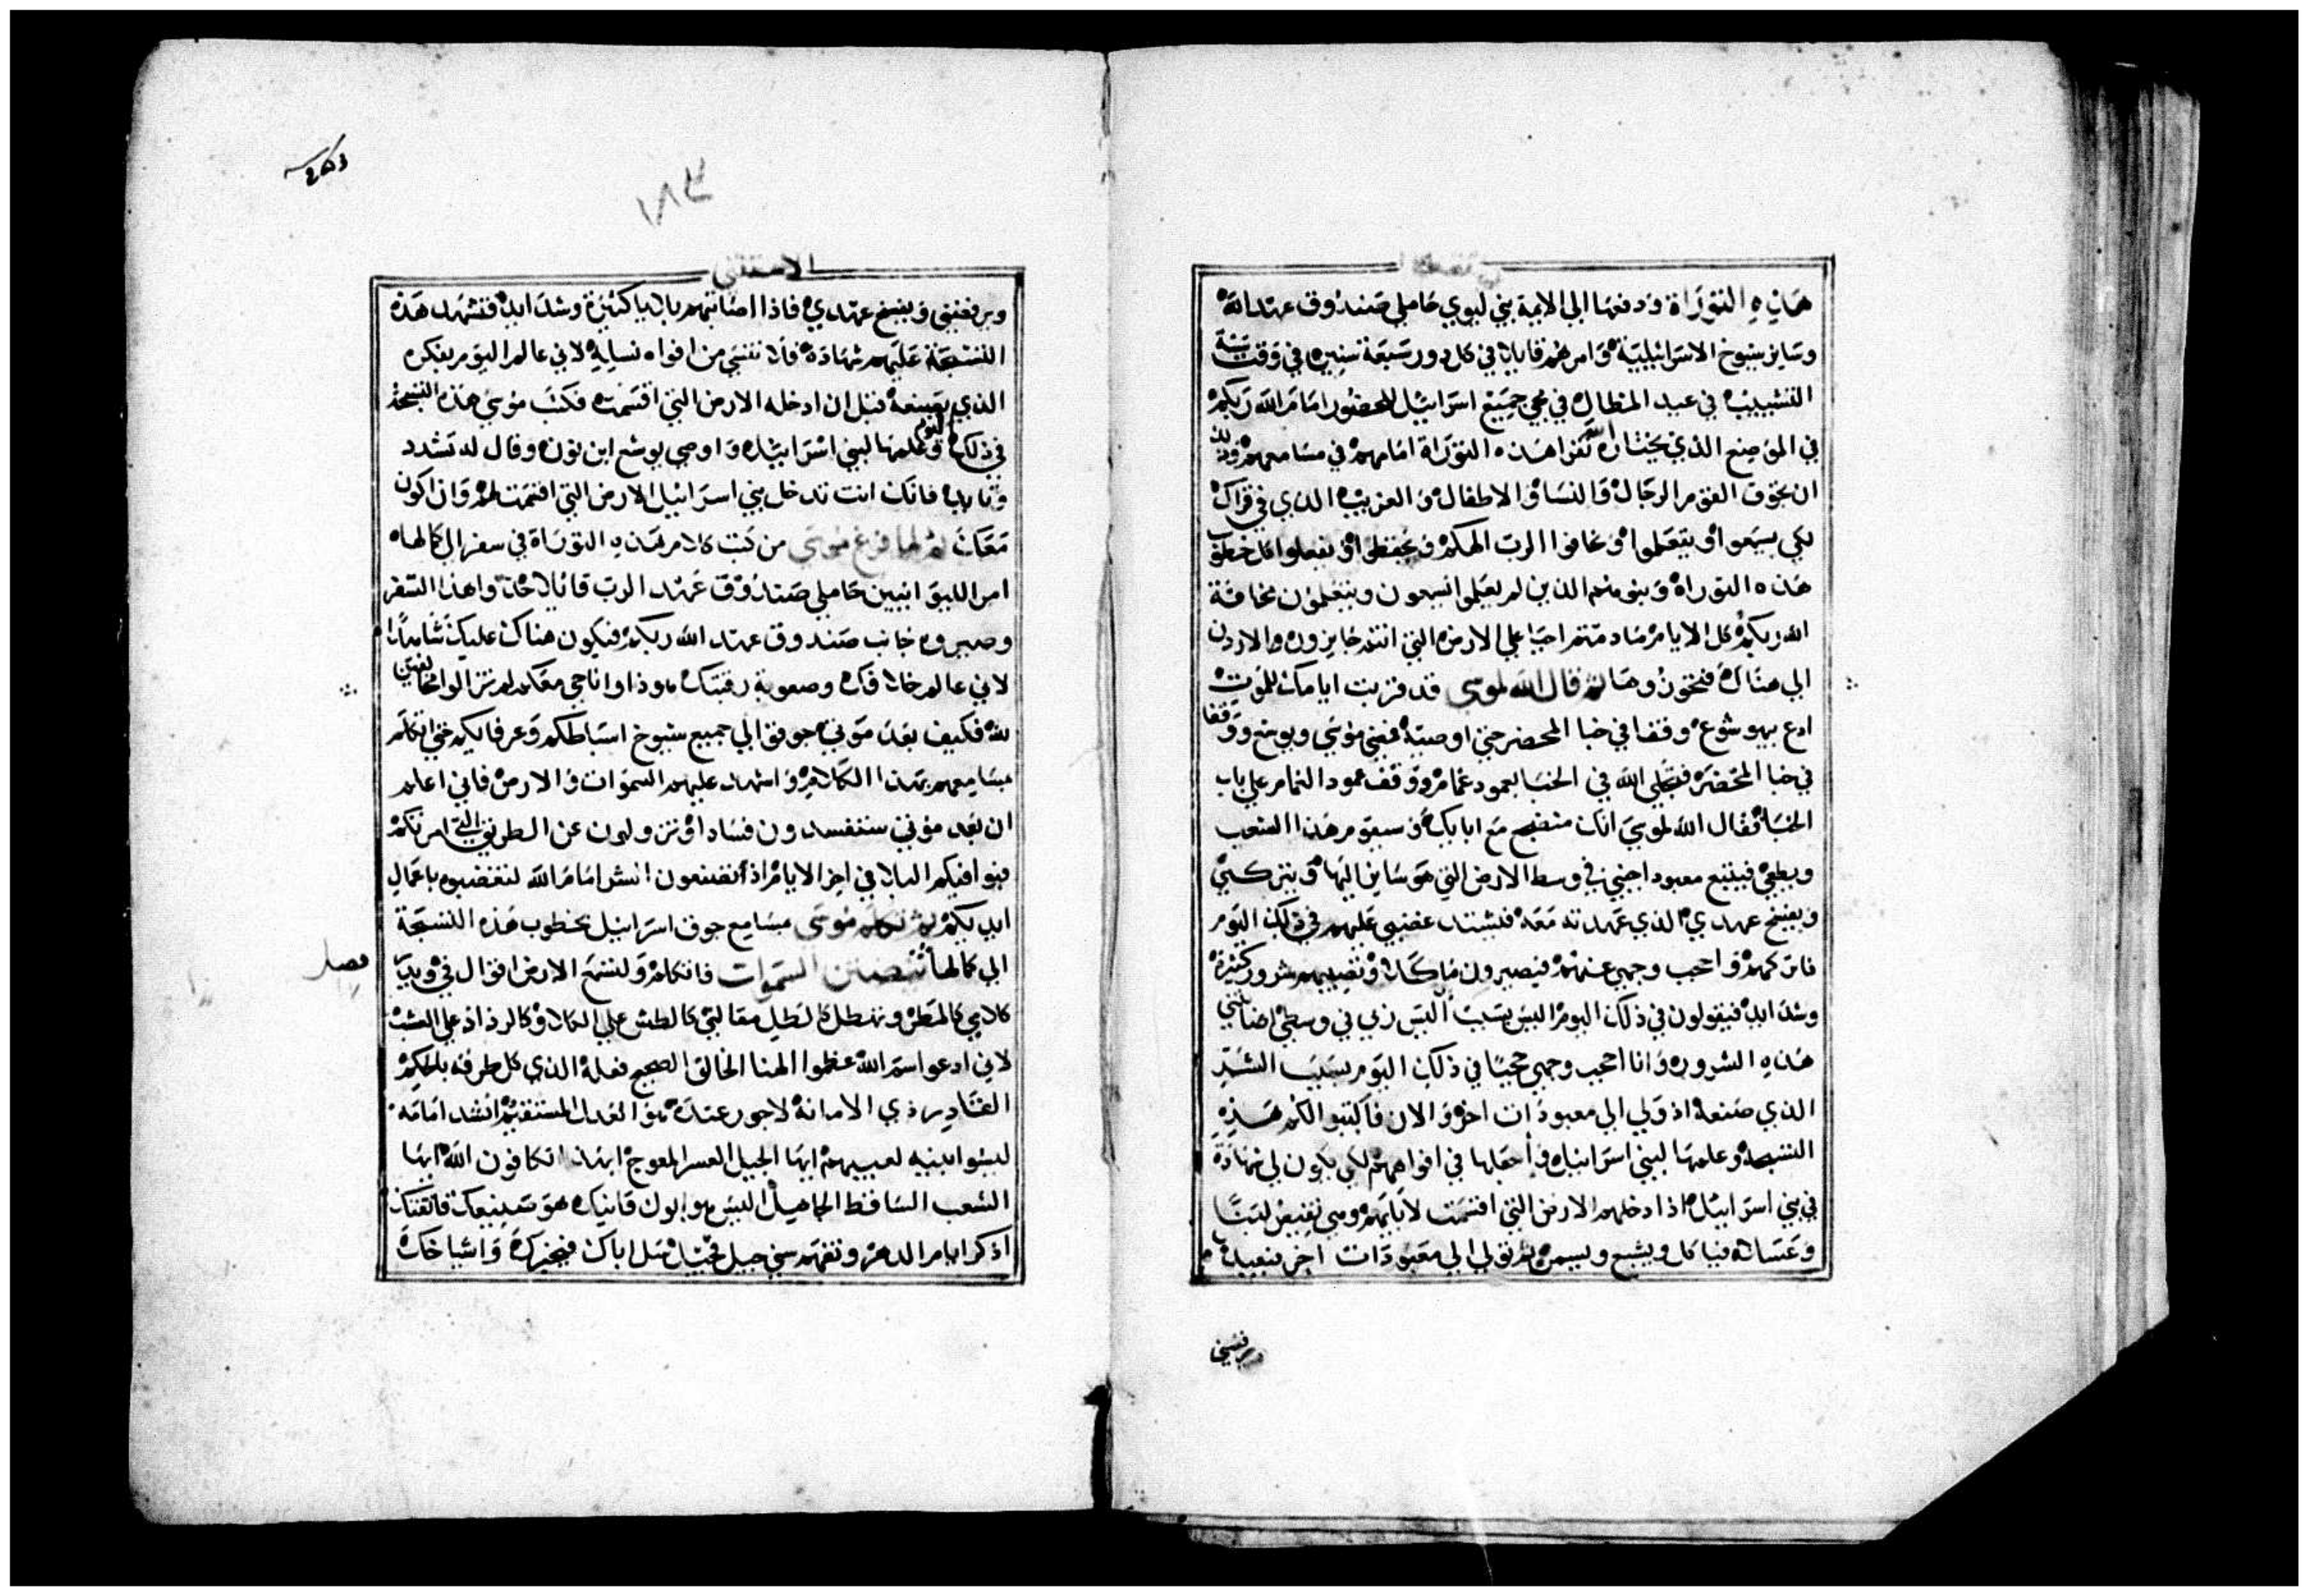 هذه التوراة ودفعها الي الايمة بني ليوي حاملي صندوق عهد الله
وساير شيوخ الاسرائيلية وامرهم قايلا في كل دور سبعة سنين في وقت سنة
التسييب في عيد المظال في مجي جميع اسرائيل للحضور امام الله ربكم
في الموضع الذي يختاره الله تقرا هذه التوراة امامهم في مسامعهم وذلك
ان تجوق القوم الرجال والنسا والاطفال والغريب الذي في قراك
لكي يسمعوا ويتعلموا وخافوا الرب الهكم ويحفظوا ويفعلوا كل خطوب
هذه التوراة وبنوهم الذين لم يعلموا يسمعون ويتعلمون مخافة
الله ربكم كل الايام مادمتم احيا علي الارض التي انتم جايزون الاردن
الي هناك فتحوزوها ثم قال الله لموسي قد قربت ايامك للموت
ادع بيهوشوع وقفا في خبا المحضر حتي اوصيه فمضي موسي ويوشع ووقفا
في خبا المحضر فتجلي الله في الخبا بعمود غمام ووقف عمود الغمام علي باب
الخبا فقال الله لموسي انك منضجع مع ابايك وسيقوم هذا الشعب
ويطغي فيتبع معبود اجنبي في وسط الارض التي هو ساير اليها ويتركني
ويفسخ عهدي الذي عهدته معه فيشتد غضبي عليهم في ذلك اليوم
فاتركهم واحجب وجهي عنهم فيصيرون ماكلا وتصيبهم شرور كثيرة
وشدايد فيقولون في ذلك اليوم اليس بسبب اليس ربي في وسطي اصابتني
هذه الشرور وانا احجب وجهي حجبا في ذلك اليوم بسبب الشر
الذي صنعه اذ ولي الي معبودات اخر والان فاكتبوا لكم هذه
التسبحة وعلمها لبني اسرائيل واجعلها في افواههم لكي يكون لي شهادة
في بني اسرائيل اذا ادخلهم الارض التي اقسمت لابايهم وهي تفيض لبنا
وعسلا فياكل ويشبع ويسمن ثم تولي الي معبودات اخر فيعبدها
ويرفضني
١٨٣
الاستثني
ويرفضني ويفسخ عهدي فاذا اصابتهم بلايا كثيرة وشدايد فتشهد هذه
التسبحة عليهم شهادة فلا تنسي من افواه نسايه لاني عالم اليوم بفكره
الذي يصنعه قبل ان ادخله الارض التي اقسمت فكتب موسي هذه التسبحة
في ذلك اليوم وعلمها لبني اسرائيل واوصي يوشع ابن نون وقال له تشدد
وتايد فانك انت تدخل بني اسرائيل الارض التي اقسمت لهم وانا اكون
معك ثم لما فرغ موسي من كتب كلام هذه التوراة في سفر الي كمالها
امر الليوانيين حاملي صندوق عهد الرب قايلا خذوا هذا السفر
وصيروه جانب صندوق عهد الله ربكم فيكون هناك عليك شاهدا
لاني عالم خلافك وصعوبة رقبتك هوذا وانا حي معكم لم تزالوا مخالفين
لله فكيف بعد موتي جوقوا الي جميع شيوخ اسباطكم وعرفايكم حتي اتكلم
مسامعهم بهذا الكلام واشهد عليهم السموات والارض فاني اعلم
ان بعد موتي ستفسدون فسادا وتزولون عن الطريق التي امرتكم
فيوافيكم البلا في اخر الايام اذ تصنعون الشر امام الله لتغضبوه باعمال
ايديكم ثم تكلم موسي مسامع جوق اسرائيل بخطوب هذه التسبحة
الي كمالها تنصتن السموات فاتكلم ولتسمع الارض اقوال في ويدب
فصل
كلامي كالمطر وتهطل كالطل مقالتي كالطش علي الكلا وكالرذاذ علي العشب
لاني ادعوا اسم الله عظموا الهنا الخالق الصحيح فعله الذي كل طرقه بالحكم
القادر ذي الامانة لا جور عنده هو العدل المستقيم انشد امامه
ليسوا بنيه لعيبهم ايها الجيل العسر المعوج ابهذا تكافون الله ايها
الشعب الساقط الجاهل اليس هو ابوك قانيك هو صنعك فاتقنك
اذكر ايام الدهر وتفهم سني جيل فجيل سل اباك فيخبرك واشياخك